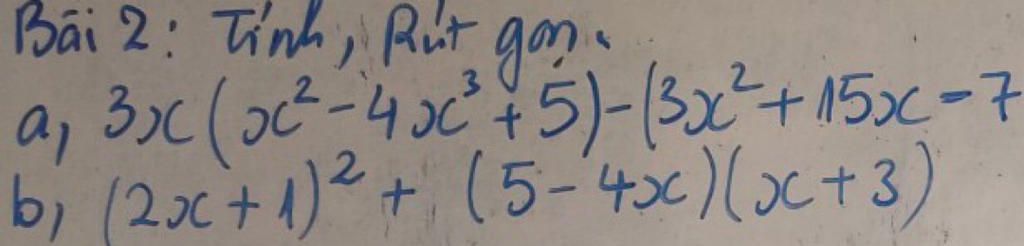 Bài 2: Tính, Rút gọn.
a, 3x(x² - 4x³ + 5) - (3x² + 15x - 7
b, (2x + 1)² + (5 - 4x)(x + 3)